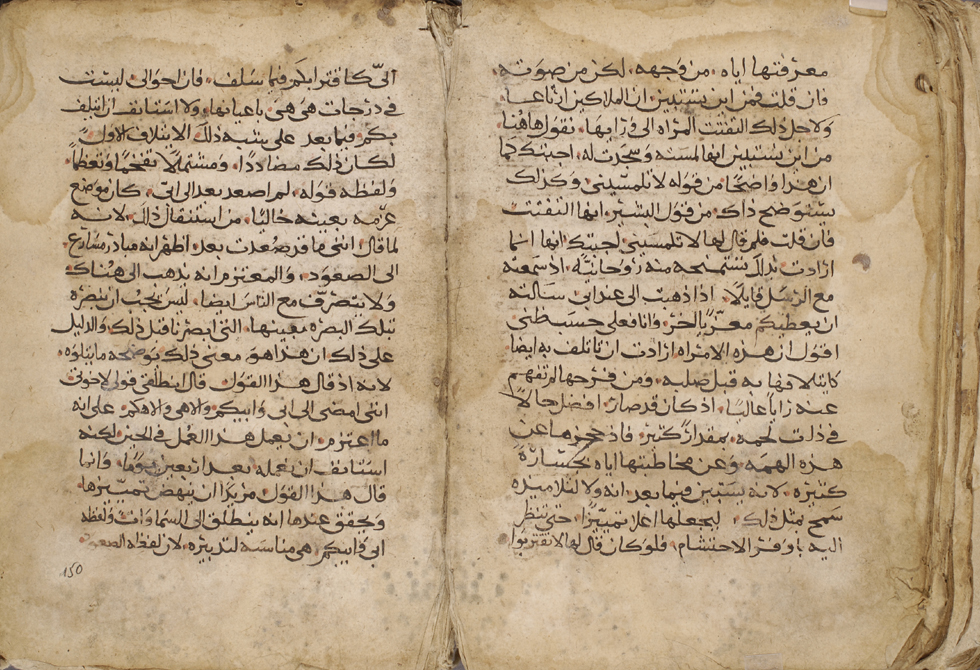 معرفتها اياه. من وجهه. لكن من صوته.
فان قلت فمن اين يستبين. ان الملاكين ارتاعا
ولاجل ذلك التفتت المراه الى ورايها. نقول هاهنا
من اين يستبين انها لمسته وسجدت له. اجبتك كما
ان هذا واضحًا من قوله لا تلمسيني وكذلك
يستوضح ذاك. من قول البشير. انها التفتت
فان قلت فلم قال لها لا تلمسيني. اجبتك انها انما
ارادت بذلك تستمنحه منه روحانيه. اذ سمعته
مع الرسل قايلًا. اذا ذهبت الى عند ابي. سالته
ان يعطيكم معزيا اخر. وانا فعلى حسب ظني
اقول ان هذه الامراه ارادت ان تاتلف به ايضا
كايتلافها به قبل صلبه. ومن فرحها لم تفهم
عنه رايا عاليًا. اذ كان قد صار. افضل حالًا
في ذات لحمه. بمقدار كثير. فاذ حجزها عن
هذه الهمه. وعن مخاطبتها اياه بجساره
كثيره. لانه يستبين فيما بعد. انه ولا لتلاميذه
سمح مثل ذلك. ليجعلها اعلا تمييزًا. حتى تنظر
اليه باوفر الاحتشام. فلو كان قال لها لا تقتربوا
اليّ كاقترابكم فيما سلف. فان احوالي ليست
في درجات هي هي. باعيانها. ولا استانف ان اتلف
بكم فيما بعد على شبه ذلك الايتلاف الاول
لكان ذلك مضاددًا. ومشتملًا تفخمًا وتعظمًا.
ولفظة قوله. لم اصعد بعد الى ابي. كان موضع
عزمه بعينه خاليًا. من استثقال ذلك. لانه
لما قال انني ما قد صعدت بعد. اظهر انه مبادر مسارع
الى الصعود. والمعتزم انه يذهب الى هناك
ولا يتصرف مع الناس ايضا. ليس يجب ان تبصره
بتلك البصره بعينها. التي ابصرنا قبل ذلك والدليل
على ذلك ان هذا هو معنى ذلك يوضحه ما يتلوه.
لانه اذ قال هذا القول. قال انطلقي قولي لاخوتي
انني امضي الى ابي وابيكم والاهي والاهكم. على انه
ما اعتزم. ان يعمل هذا العمل في الحين. لكنه
استانف ان يعمله بعد اربعين يومًا. وانما
قال هذا القول. مريدًا ان ينهض تمييزها
ويحقق عندها انه ينطلق الى السماوات ولفظه
ابي وابيكم. هي مناسبه لتدبيره. لان لفظة الصعود
150